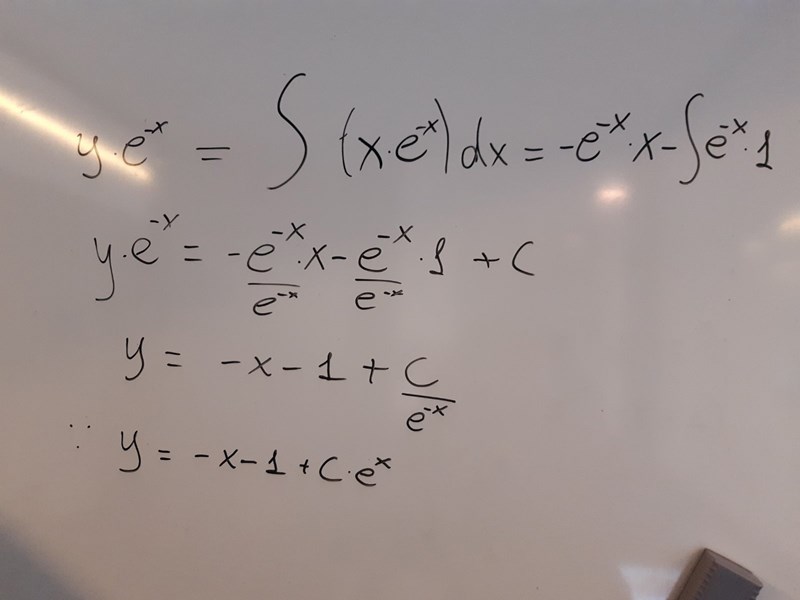 y·e^{-x} = ∫ (x·e^{-x}) dx = -e^{-x}·x - ∫e^{-x}·1
y·e^{-x} = \frac{-e^{-x}·x}{e^{-x}} - \frac{e^{-x}}{e^{-x}}·1 + C
y = -x - 1 + \frac{C}{e^{-x}}
∵ y = -x - 1 + C·e^{x}